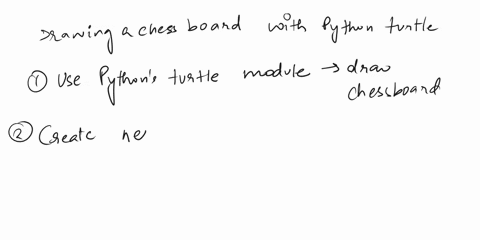 Drawing a chess board with Python turtle
① Use Python's turtle module → draw
chessboard
② Create ne